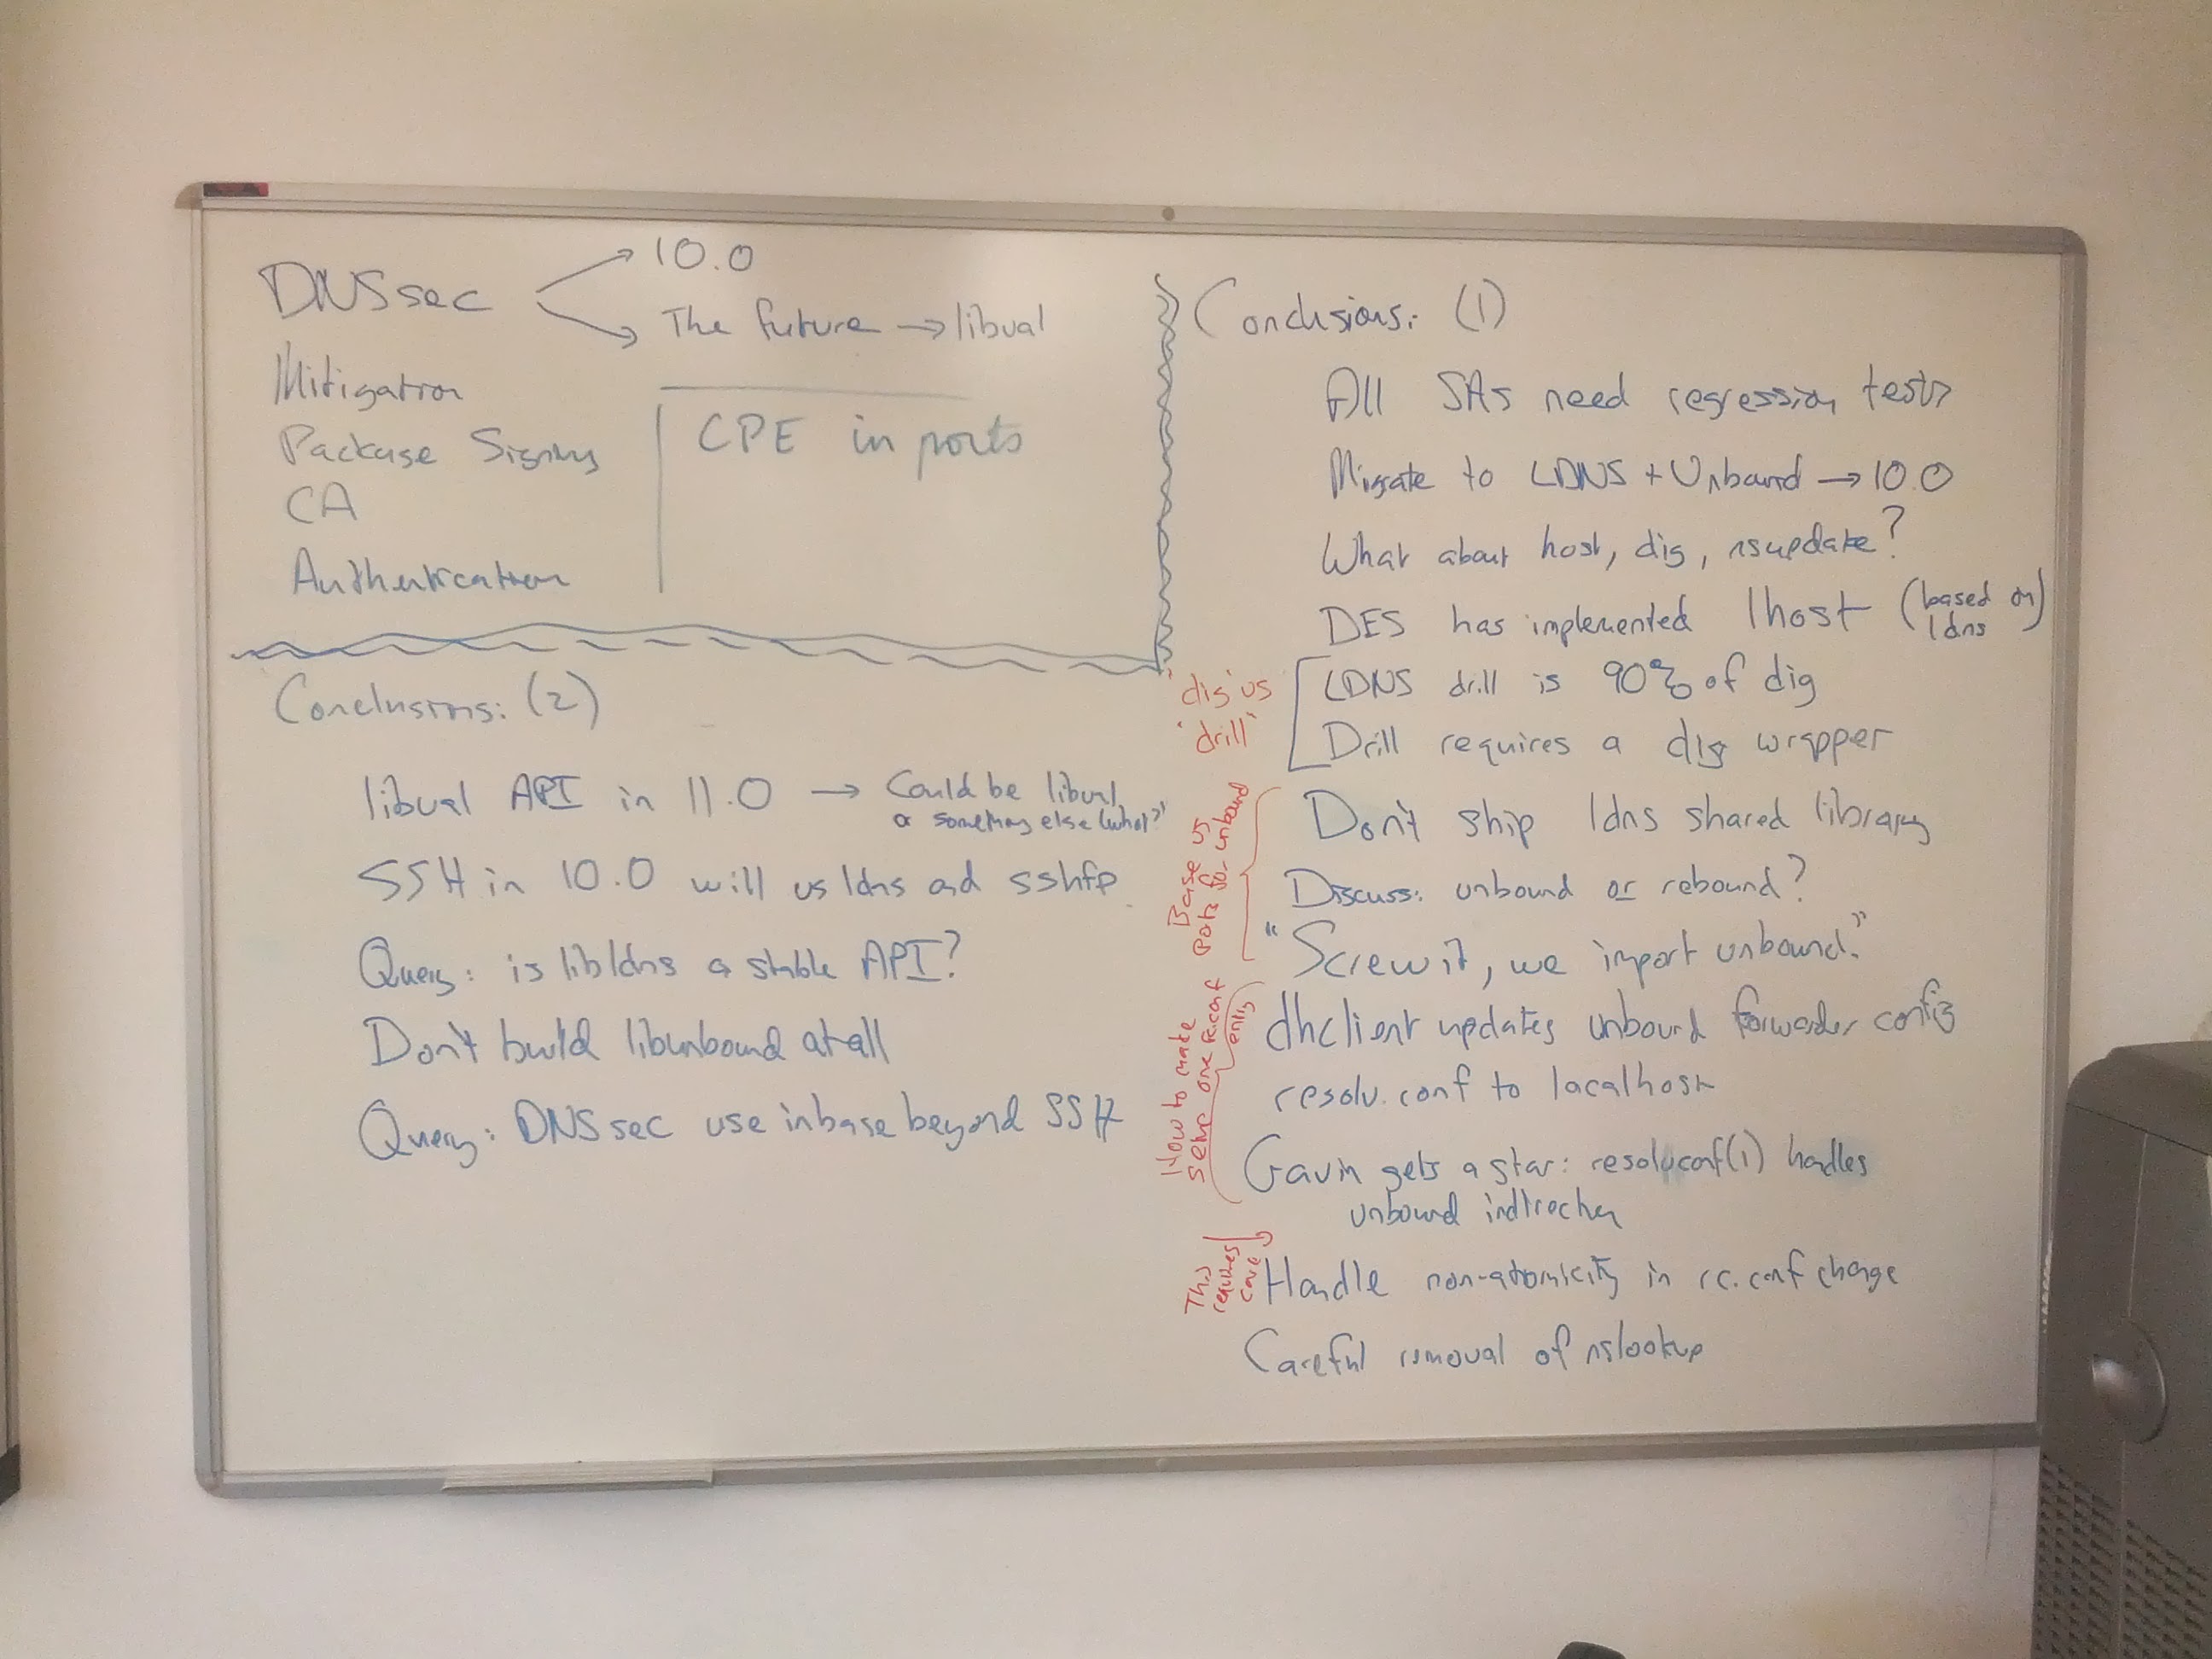 DNSsec
10.0
The future → libval
Mitigation
Package Signing
CA
Authentication
CPE in ports
Conclusions: (1)
All SAs need regression tests
Migrate to LDNS + Unbound → 10.0
What about host, dig, nsupdate?
DES has implemented lhost (based on ldns)
'dig' vs
'drill'
LDNS drill is 90% of dig
Drill requires a dig wrapper
Base vs
Ports for unbound
Don't ship ldns shared library
Discuss: unbound or rebound?
"Screw it, we import unbound."
How to make
one rc.conf
entry
dhclient updates unbound forwarder config
resolv.conf to localhost
Gavin gets a star: resolvconf(1) handles
unbound indirection
This
requires
care
Handle non-atomicity in rc.conf change
Careful removal of nslookup
Conclusions: (2)
libval API in 11.0 → Could be libval
or something else (who?)
SSH in 10.0 will us ldns and sshfp
Query: is libldns a stable API?
Don't build libunbound at all
Query: DNSsec use in base beyond SSH